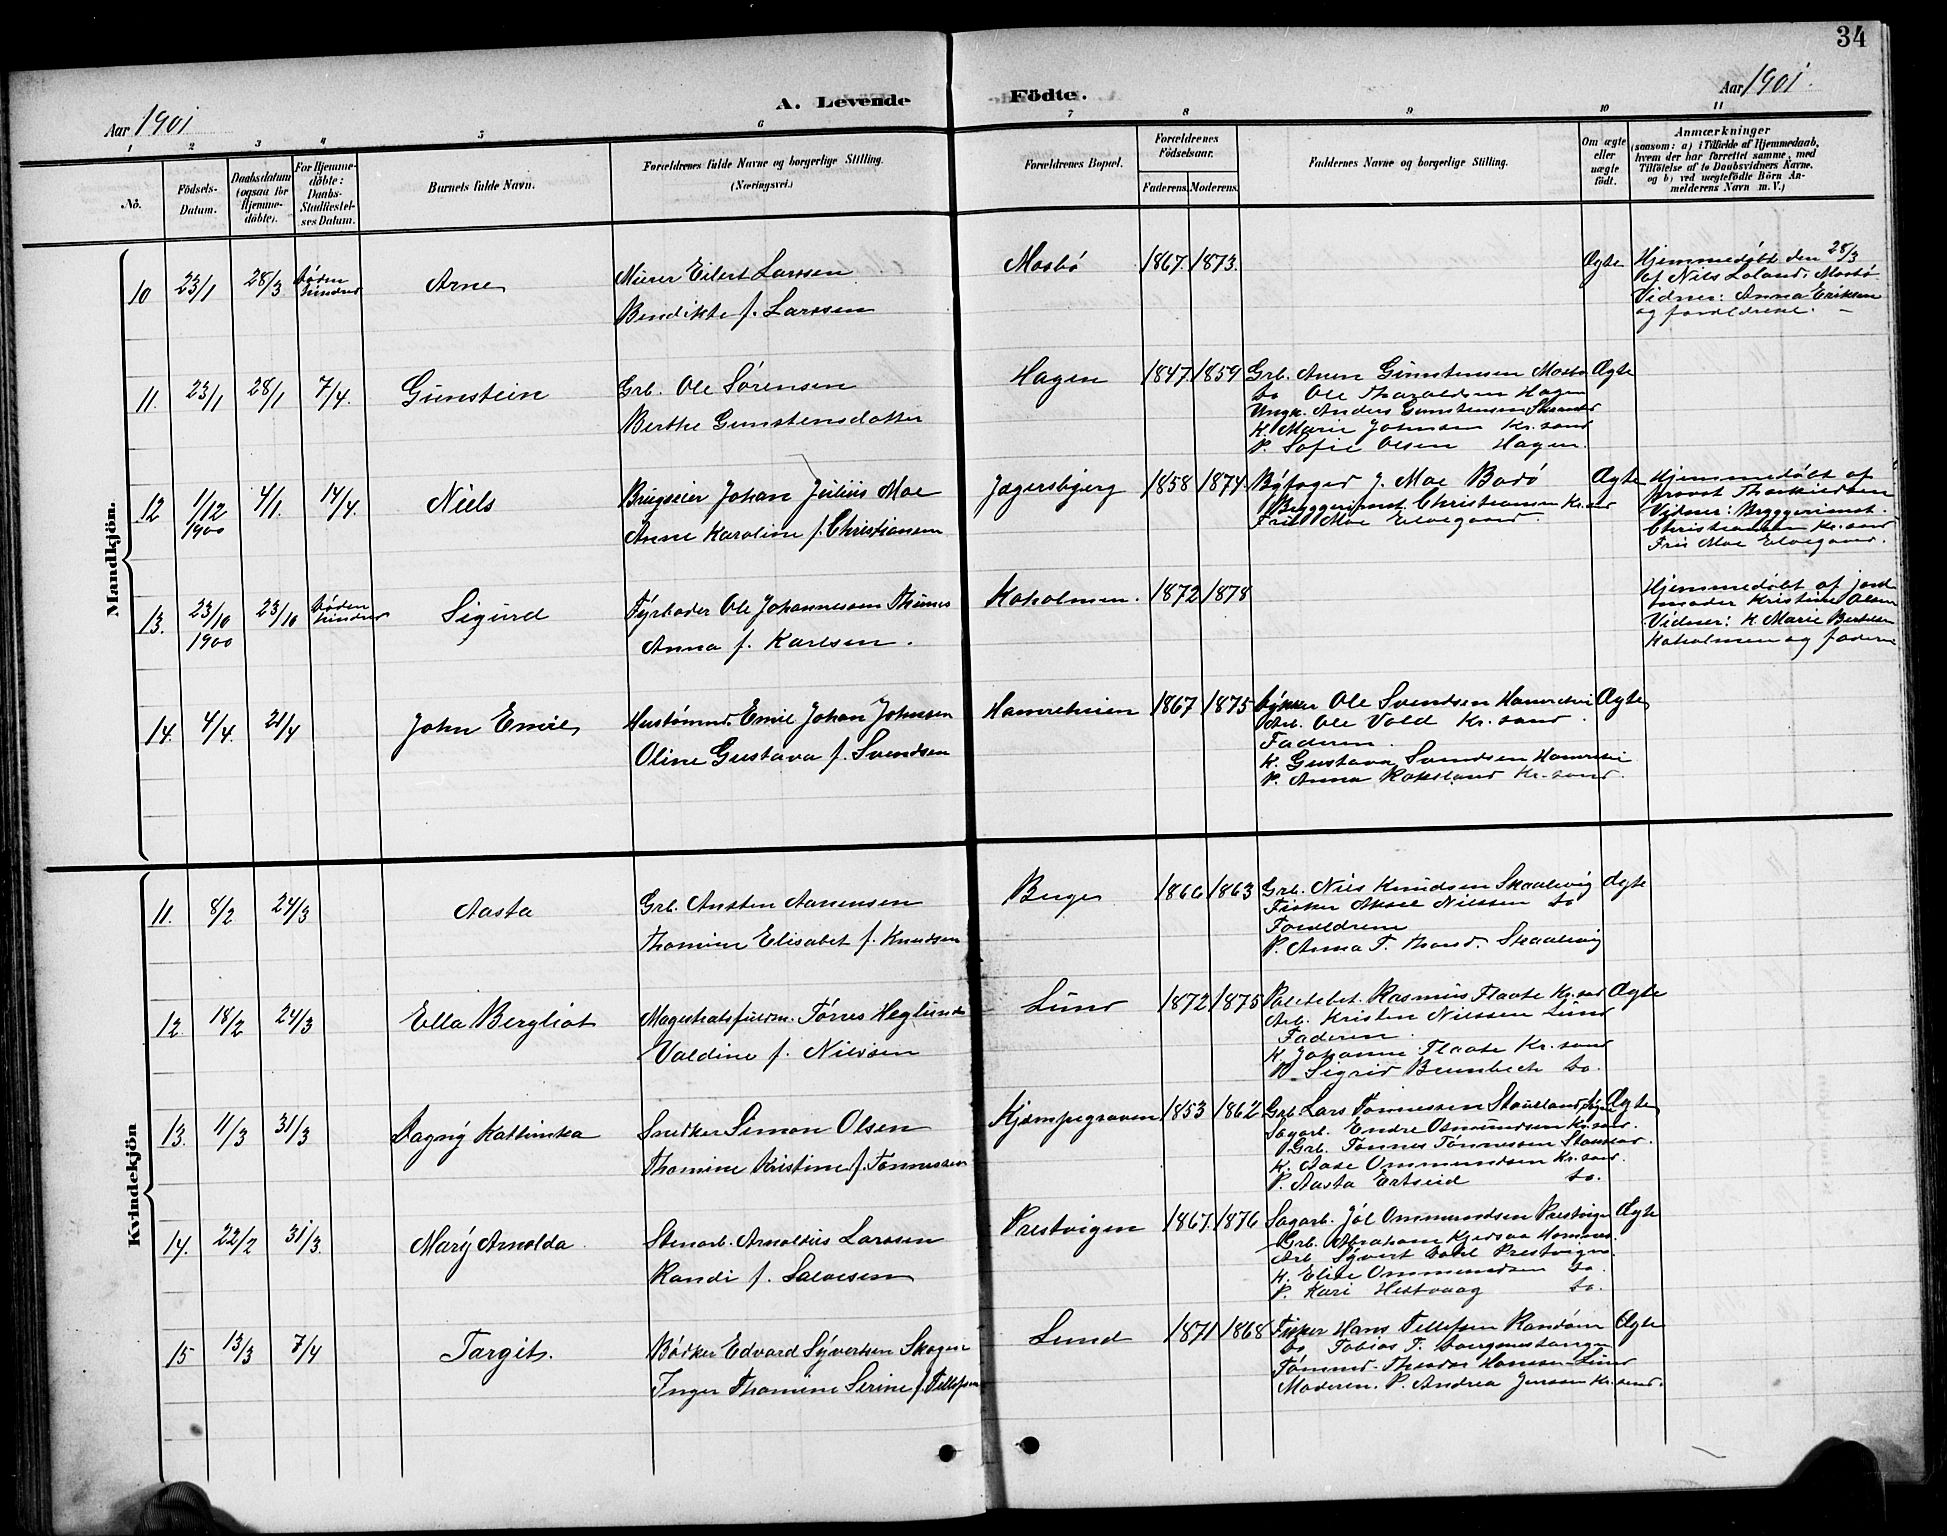 34
A. Levende Födte.
Aar 1901
Aar 1901.
1 2 3 4 5 6 7 8 9 10 11
No.
Födsels-Datum.
Daabsdatum (ogsaa for Hjemmedöbte).
For Hjemmedöbte: Daabs-Stadfæstelses Datum.
Barnets fulde Navn.
Forældrenes fulde Navne og borgerlige Stilling.
(Næringsvei.)
Forældrenes Bopæl.
Forældrenes Födselsaar.
Faderens. Moderens.
Faddernes Navne og borgerlige Stilling.
Om ægte eller uægte födt.
Anmærkninger
(saasom: a) i Tilfælde af Hjemmedaab, hvem der har forrettet samme, med Tilföielse af to Daabsvidners Navne. og b) ved uægtefödte Börn Anmelderens Navn m. V.)
Mandkjön.
10 23/1 28/3 Døden hindret Arne
Murer Eilert Larssen
Bendikte f. Larssen
Mosbø 1867. 1873. Ægte
Hjemmedøbt den 28/3
af Nils Loland, Mosbø
Vidner: Anna Eriksen
og forældrene.
11. 23/1 28/1 7/4. Gunstein
Grb. Ole Sørensen
Berthe Gunstensdatter
Hagen 1847. 1859 Ægte
Grb. Anen Gunstensen Mosbø
do Ole Hagen
Ungk. Anders Gunstensen
K. Marie Johnsen Kr.sand
P. Sofie Olsen Hagen.
12 1/12 1900 4/1. 14/4. Niels
Brugseier Johan Julius Moe
Anne Karoline f. Christiansen
Jægersbjerg 1858 1874. Ægte
Byfoged J. Moe Bodø
Bryggerimst. Christiansen Kr.sand
Moe Elvegaard.
Hjemmedøbt af
Provst
Vidner: Bryggerimst.
Christiansen Kr.sand
Moe Elvegaard.
13. 23/10 1900 23/10 Døden hindret Sigurd
Fyrbøder Ole Johannessen
Anna f. Karlsen.
Kokolmen. 1872 1878
Hjemmedøbt af jord
moder Kristine Olsen
Vidner: K. Marie Bertelsen
Kokolmen og faderen
14. 4/4. 21/4 John Emil
Hustømmd. Emil Johan Johnsen
Oline Gustava f. Svendsen
1867 1875 Ægte
Ole Svendsen
Arb. Ole Vold Kr.sand.
Faderen.
K. Gustava Svendsen
P. Anna Roksland Kr.sand.
Kvindekjön
11. 8/2 24/3 Aasta
Grb. Austen Aanensen
Thomine Elisabet f. Knudsen
Berge 1866 1863 Ægte
Grb. Nils Knudsen Skaalevig
Fisker Aksel Nilssen do
Forældrene
P. Anna T. Skaalevig
12. 18/2 24/3 Ella Bergliot
Magistratsfuldm. Tørres Heglund
Valdine f. Nilssen
Lund 1872 1875 Ægte
Politibet. Rasmus Flaate Kr.sand
Arb. Kristen Nilssen Lund
Faderen
K. Johanne Flaate Kr.sand
P. Sigrid do.
13. 11/3 31/3 Dagny Kathinka
Snedker Simon Olsen
Thomine Kristine f. Tønnessen
Kjæmpegraven 1853 1862 Ægte
Grb. Lars Tønnessen
Sagarb. Endre Omundsen Kr.sand.
Grb. Tønnes Tønnessen
K. Aase Ommundsen Kr.sand.
P. Aasta Ertseid do.
14. 22/2 31/3. Mary Arnolda
Stenarb. Arnoldus Larssen
Randi f. Salvesen
Prestvigen 1867. 1876 Ægte
Sagarb. Joel Ommundsen Prestvigen
Grb. Abraham
Arb. Syvert Prestvigen.
K. Elise Ommundsen do.
P. Kari Hestvaag do.
15 13/3 7/4 Targit.
Bødker Edvard Syvertsen Skogen
Inger Thomine Serine f. Tellefsen
Lund 1871 1868 Ægte
Fisker Hans Tellefsen Randøen
do Tobias T.
Tømmd. Theodor Hanssen Lund
Moderen. P. Andrea Jenssen Kr.sand.